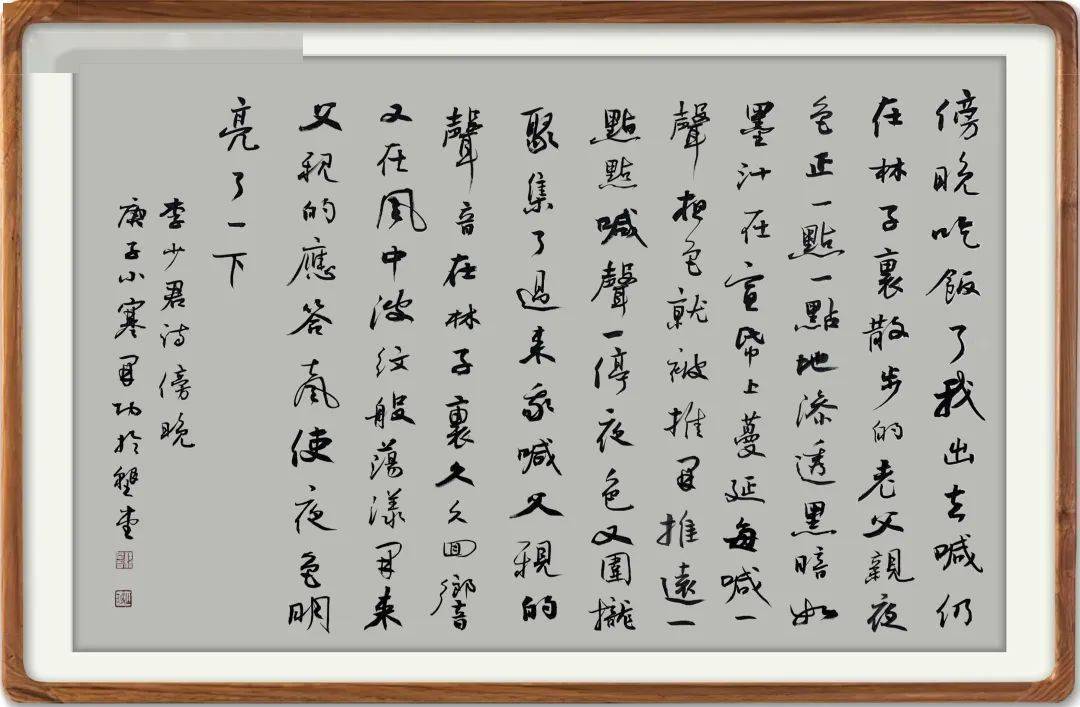 傍晚吃飯了我出去喊仍
在林子裏散步的老父親夜
色正一點一點地滲透黑暗如
墨汁在宣帋上蔓延每喊一
聲夜色就被推開推遠一
點點喊聲一停夜色又圍攏
聚集了過來我喊父親的
聲音在林子裏久久回響
又在風中波紋般蕩漾開來
父親的應答聲使夜色明
亮了一下
李少君詩傍晚
庚子小寒開功於堂